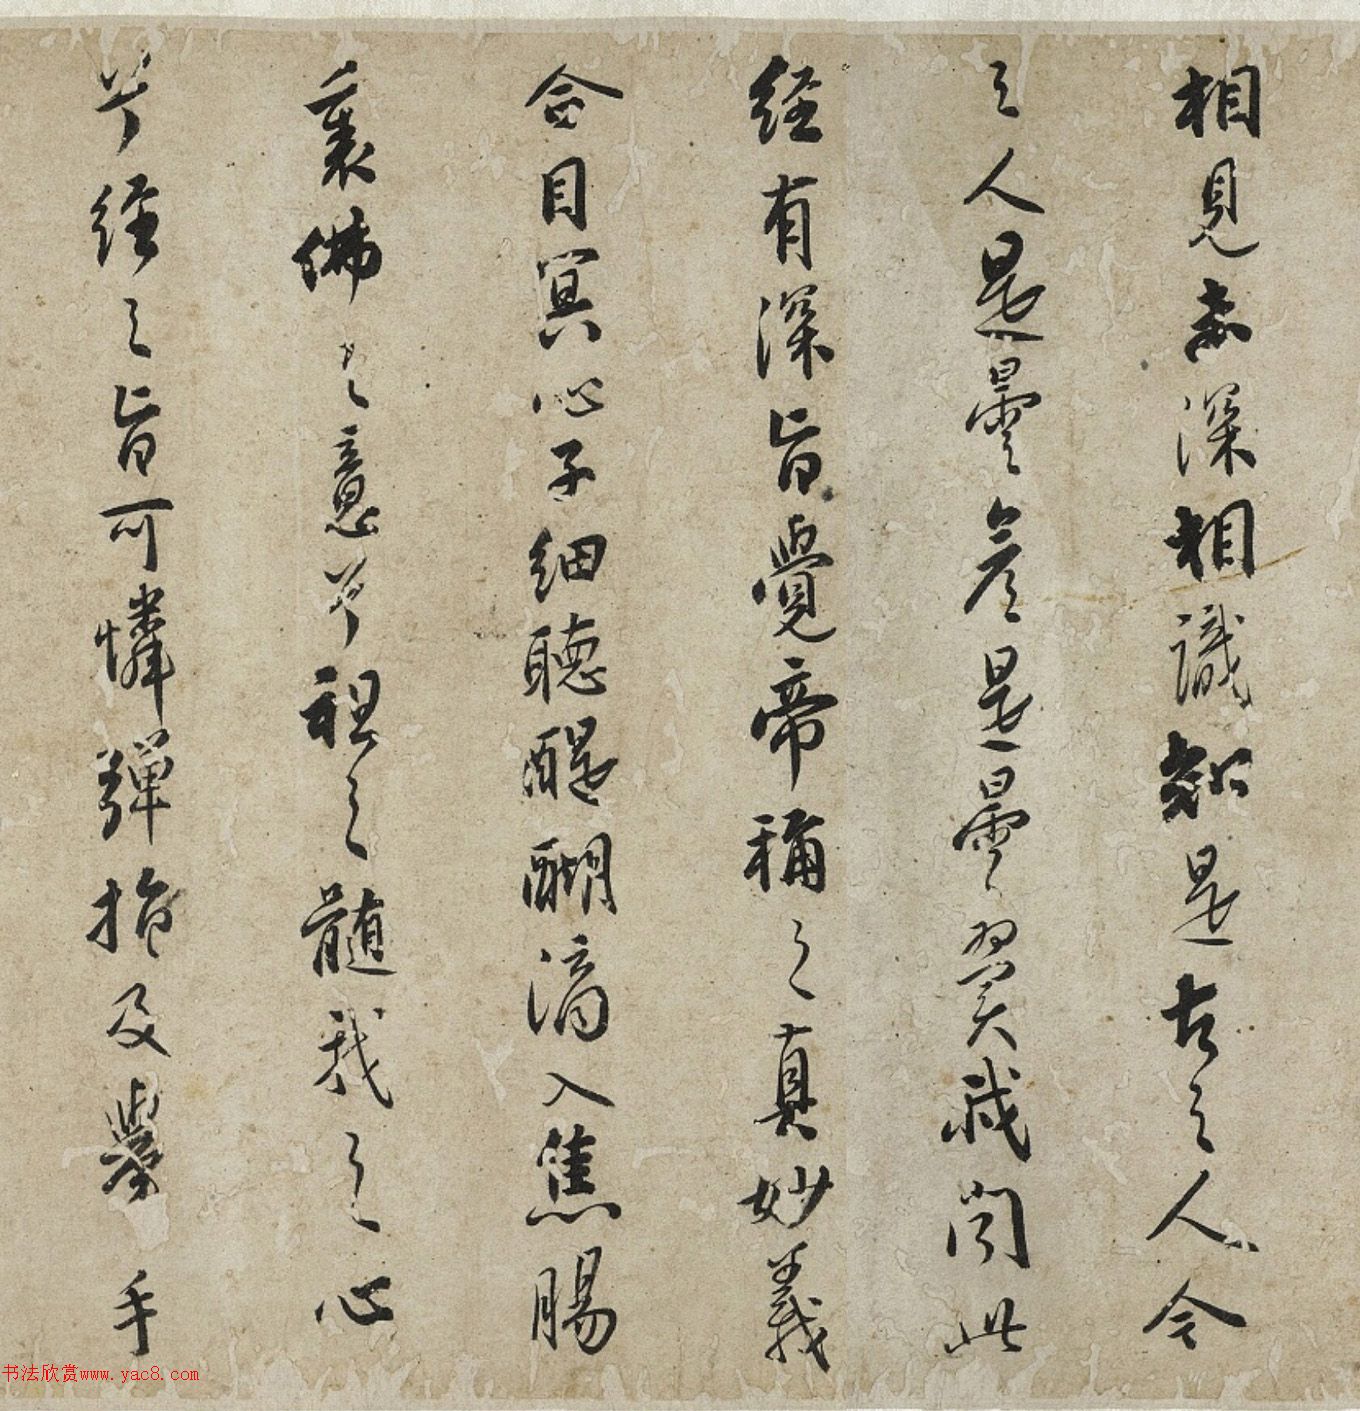 相見亦深相識知是古之人今
之人是曇彥是曇翼我聞此
經有深旨覺帝稱之真妙義
合目冥心子細聽醍醐滴入焦腸
裏佛之意兮祖之髓我之心
兮經之旨可憐彈指及舉手
书法欣赏www.yac8.com